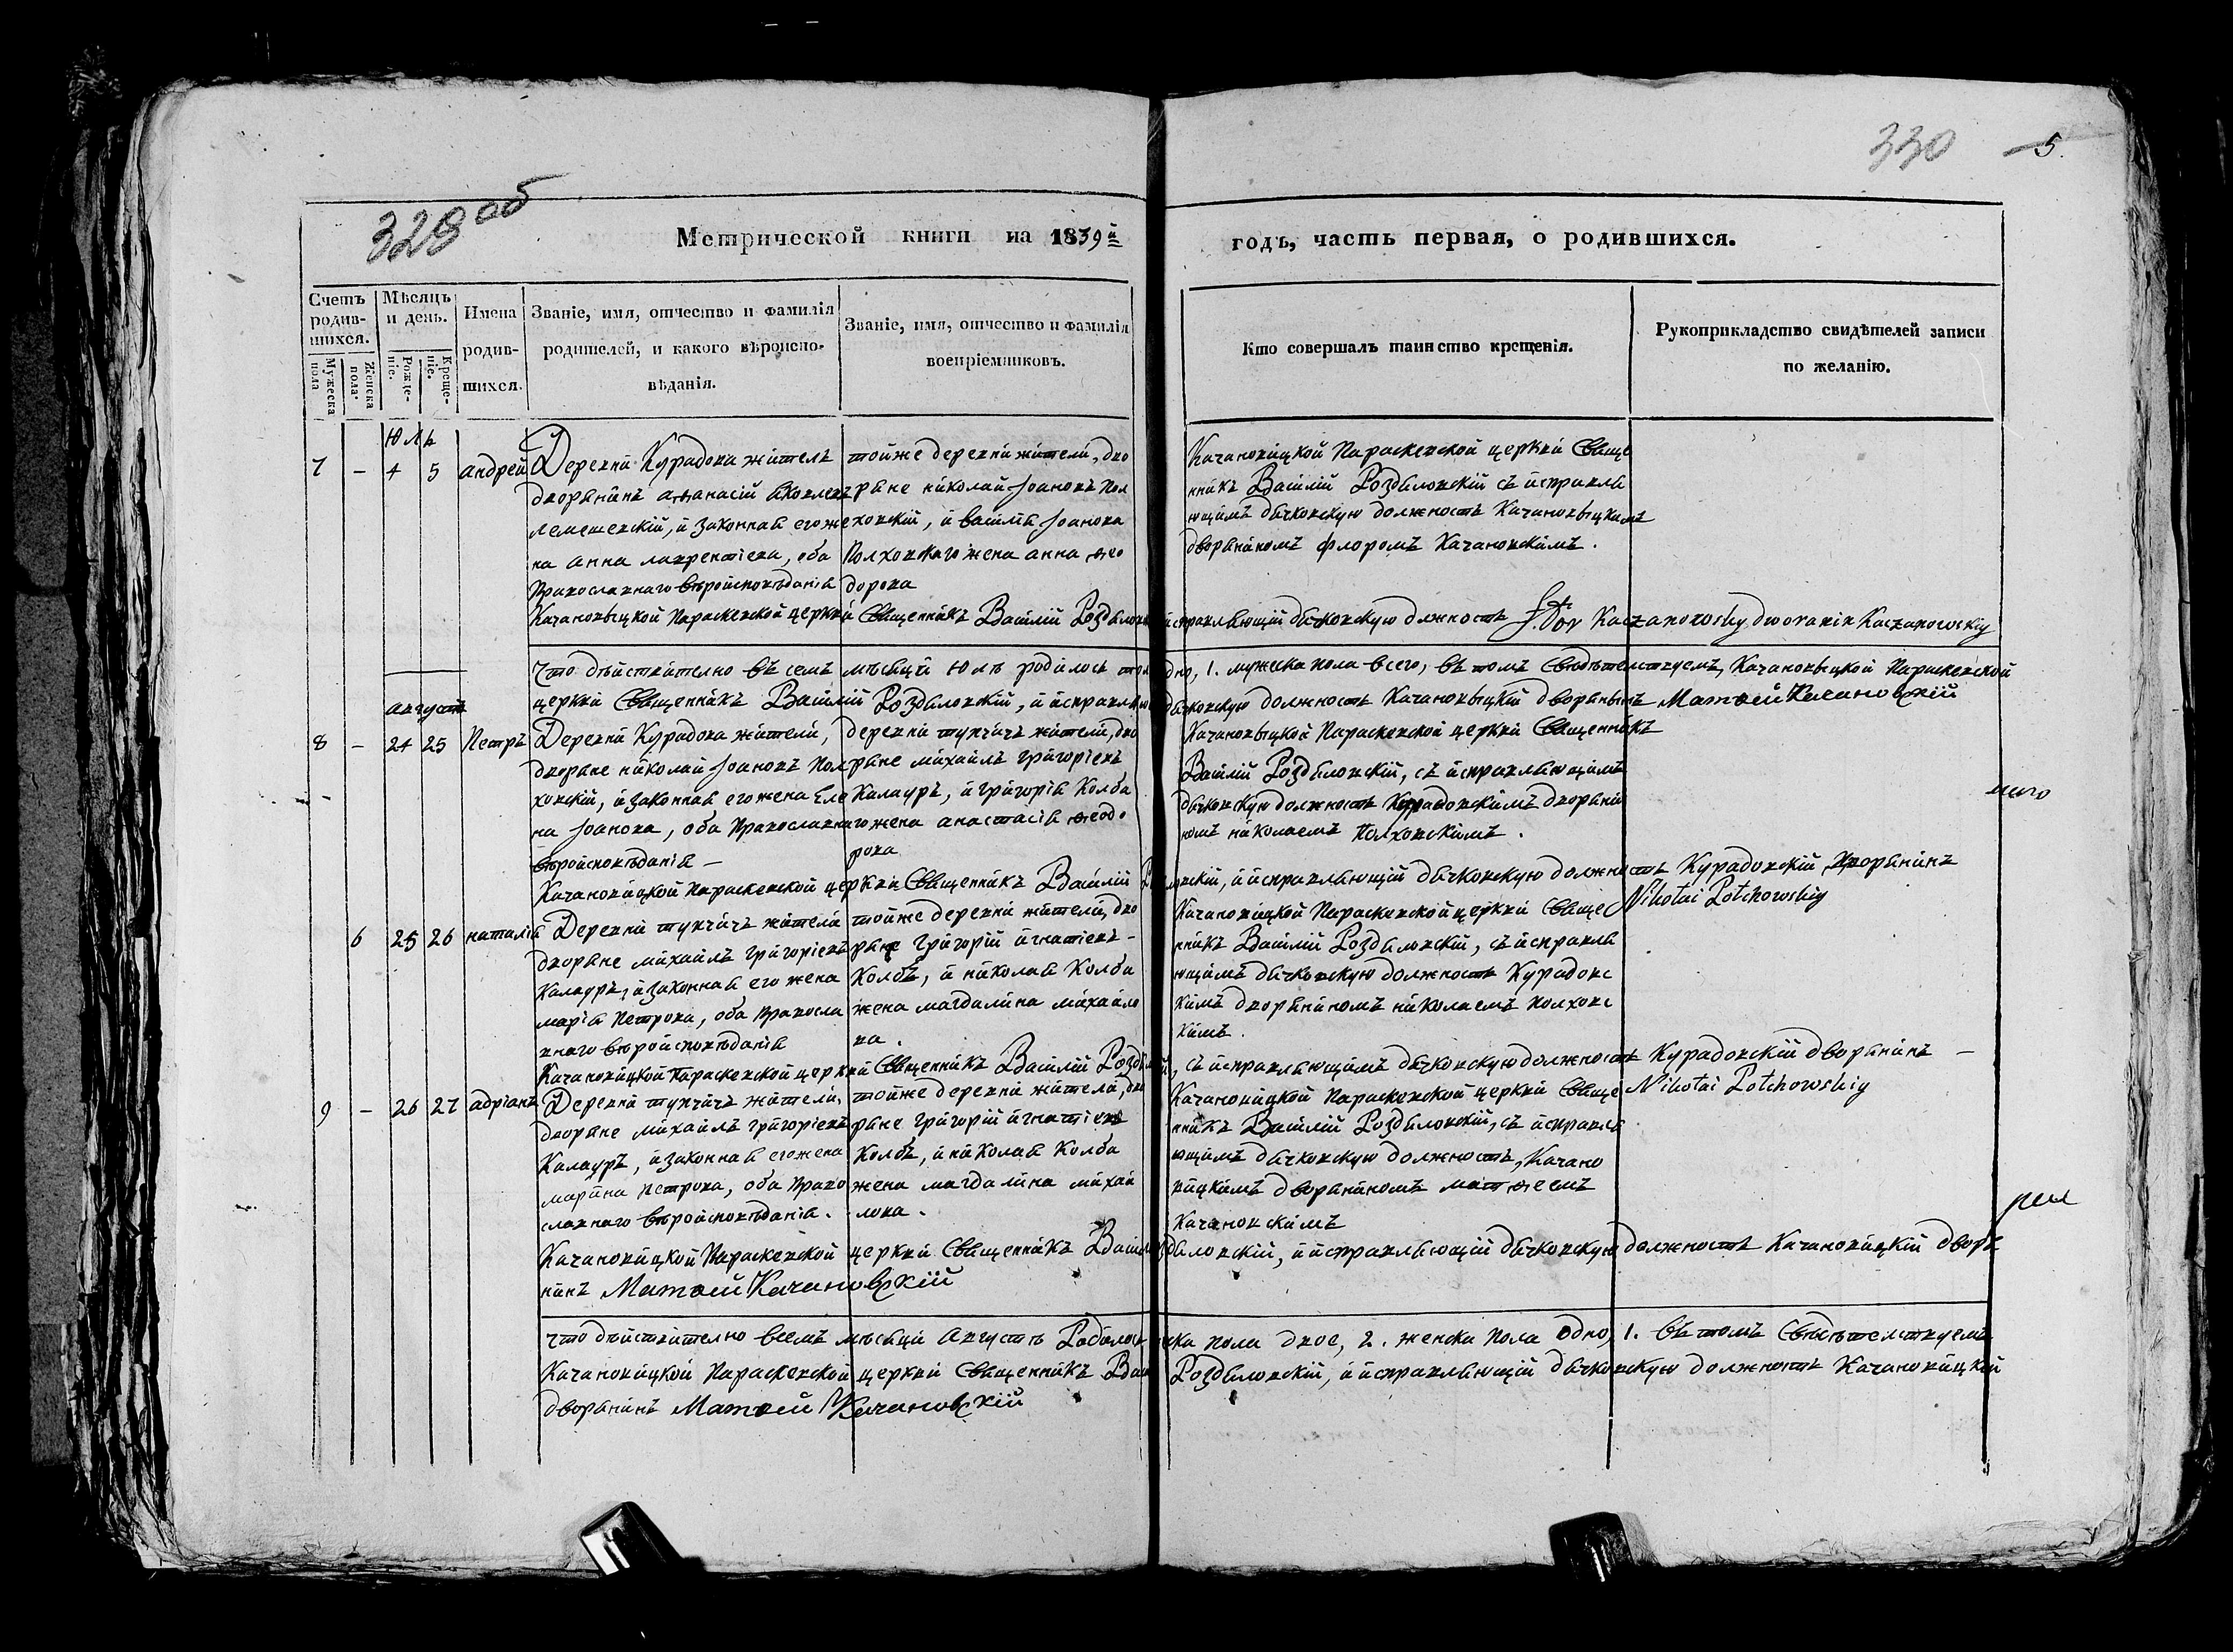 330 5.
329 об
Метрической книги на 1839й годъ, часть первая, о родившихся.
Счетъ родив-шихся.
Мужеска пола
Женска пола
Мѣсяцъ и день.
Рожде-ніе.
Креще-ніе.
Имена родив-шихся.
Званіе, имя, отчество и фамилія родителей, и какого вѣроиспо-вѣданія.
Званіе, имя, отчество и фамилія воспріемниковъ.
Кто совершалъ таинство крещенія.
Рукоприкладство свидѣтелей записи по желанію.
Юль
7 – 4 5 андрей
Деревни Курадова жытель
дворянинъ аѳанасій яковлевъ
лемешевскій, и законная его же
на анна лаврентіева, оба
Православнаго вѣроисповѣданія
тойже деревни жытели, дво
ряне николай Іоановъ Пол
ховскій, и василія Іоанова
Полховскаго жена анна ѳео
дорова
Качановицкой Параскевской церкви Свяще
нникъ Василій Роздяловскій съ исправля
ющимъ дячковскую должность Качановыцкимъ
дворяниномъ флоромъ Качановскимъ.
Качановыцкой Параскевской церкви Священникъ Василій исправляющій дячковскую должность Kaczanowsky dworanin Kaczanowskiy
Что дѣйствително въ семъ мѣсяци Юлѣ родилось одно, 1. мужеска пола всего, въ томъ Свыдѣтелствуемъ, Качановыцкой Параскевской
церкви Священникъ Василій Роздяловскій, и дячковскую должность Качановыцкій дворянынъ Матѳей Качановскій
августъ
8 – 24 25 Петръ
Деревни Курадова жытели,
дворяне николай Іоановъ Пол
ховскій, и законная его жена Еле
на Іоанова, оба Православнаго
вѣроисповѣданія –
деревни тупчичъ жытели, дво
ряне михаилъ григоріевъ
Калауръ, и григорія Колба
жена анастасія ѳеодо
рова
Качановыцкой Параскевской церкви Священникъ
Василій Роздяловскій, съ исправляющимъ
дячковскую должность Курадовскимъ дворяни
номъ николаемъ Полховскимъ.
Качановицкой Параскевской церкви Священникъ Василій и исправляющій дячковскую должность Курадовскій дворянинъ
Nikołai Połchowskiy
6 25 26 наталія
Деревни тупчичъ жытели
дворяне михаилъ григоріевъ
Калауръ, и законная его жена
марія Петрова, оба Правосла
внаго вѣроисповѣданія
тойже деревни жытели, дво
ряне григорій игнатіевъ –
Колбъ, и николая Колба
жена магдалина михайло
ва.
Качановицкой Параскевской церкви Свяще
нникъ Василій Роздяловскій, съ исправля
ющимъ дячковскую должность Курадовс
кимъ дворяниномъ николаемъ полховс
кимъ.
Качановицкой Параскевской церкви Священникъ Василій съ исправляющимъ дячковскую должность Курадовскій дворянинъ –
Nikołai Połchowskiy
9 – 26 27 адріанъ
Деревни тупчичъ жытели,
дворяне михаилъ григоріевъ
Калауръ, и законная его жена
марина петрова, оба Право
славнаго вѣроисповѣданія.
тойже деревни жытели, дво
ряне григорій игнатіевъ
Колбъ, и николая Колба
жена магдалина михай
лова.
Качановицкой параскевской церкви Свяще
нникъ Василій Роздяловскій, съ исправля
ющимъ дячковскую должность, Качано
вицкимъ дворяниномъ матѳеемъ
Качановскимъ
Качановицкой Параскевской церкви Священникъ и исправляющій дячковскую должность Качановицкій дворя
нинъ Матѳей Качановскій
Что дѣйствително всемъ мѣсяци Августѣ Родилось пола двое, 2. женска пола одно, 1. въ томъ Свыдѣтелствуемъ
Качановицкой Параскевской церкви Священникъ Роздяловскій, и исправляющій дячковскую должность Качановицкой
дворянинъ Матѳей Качановскій